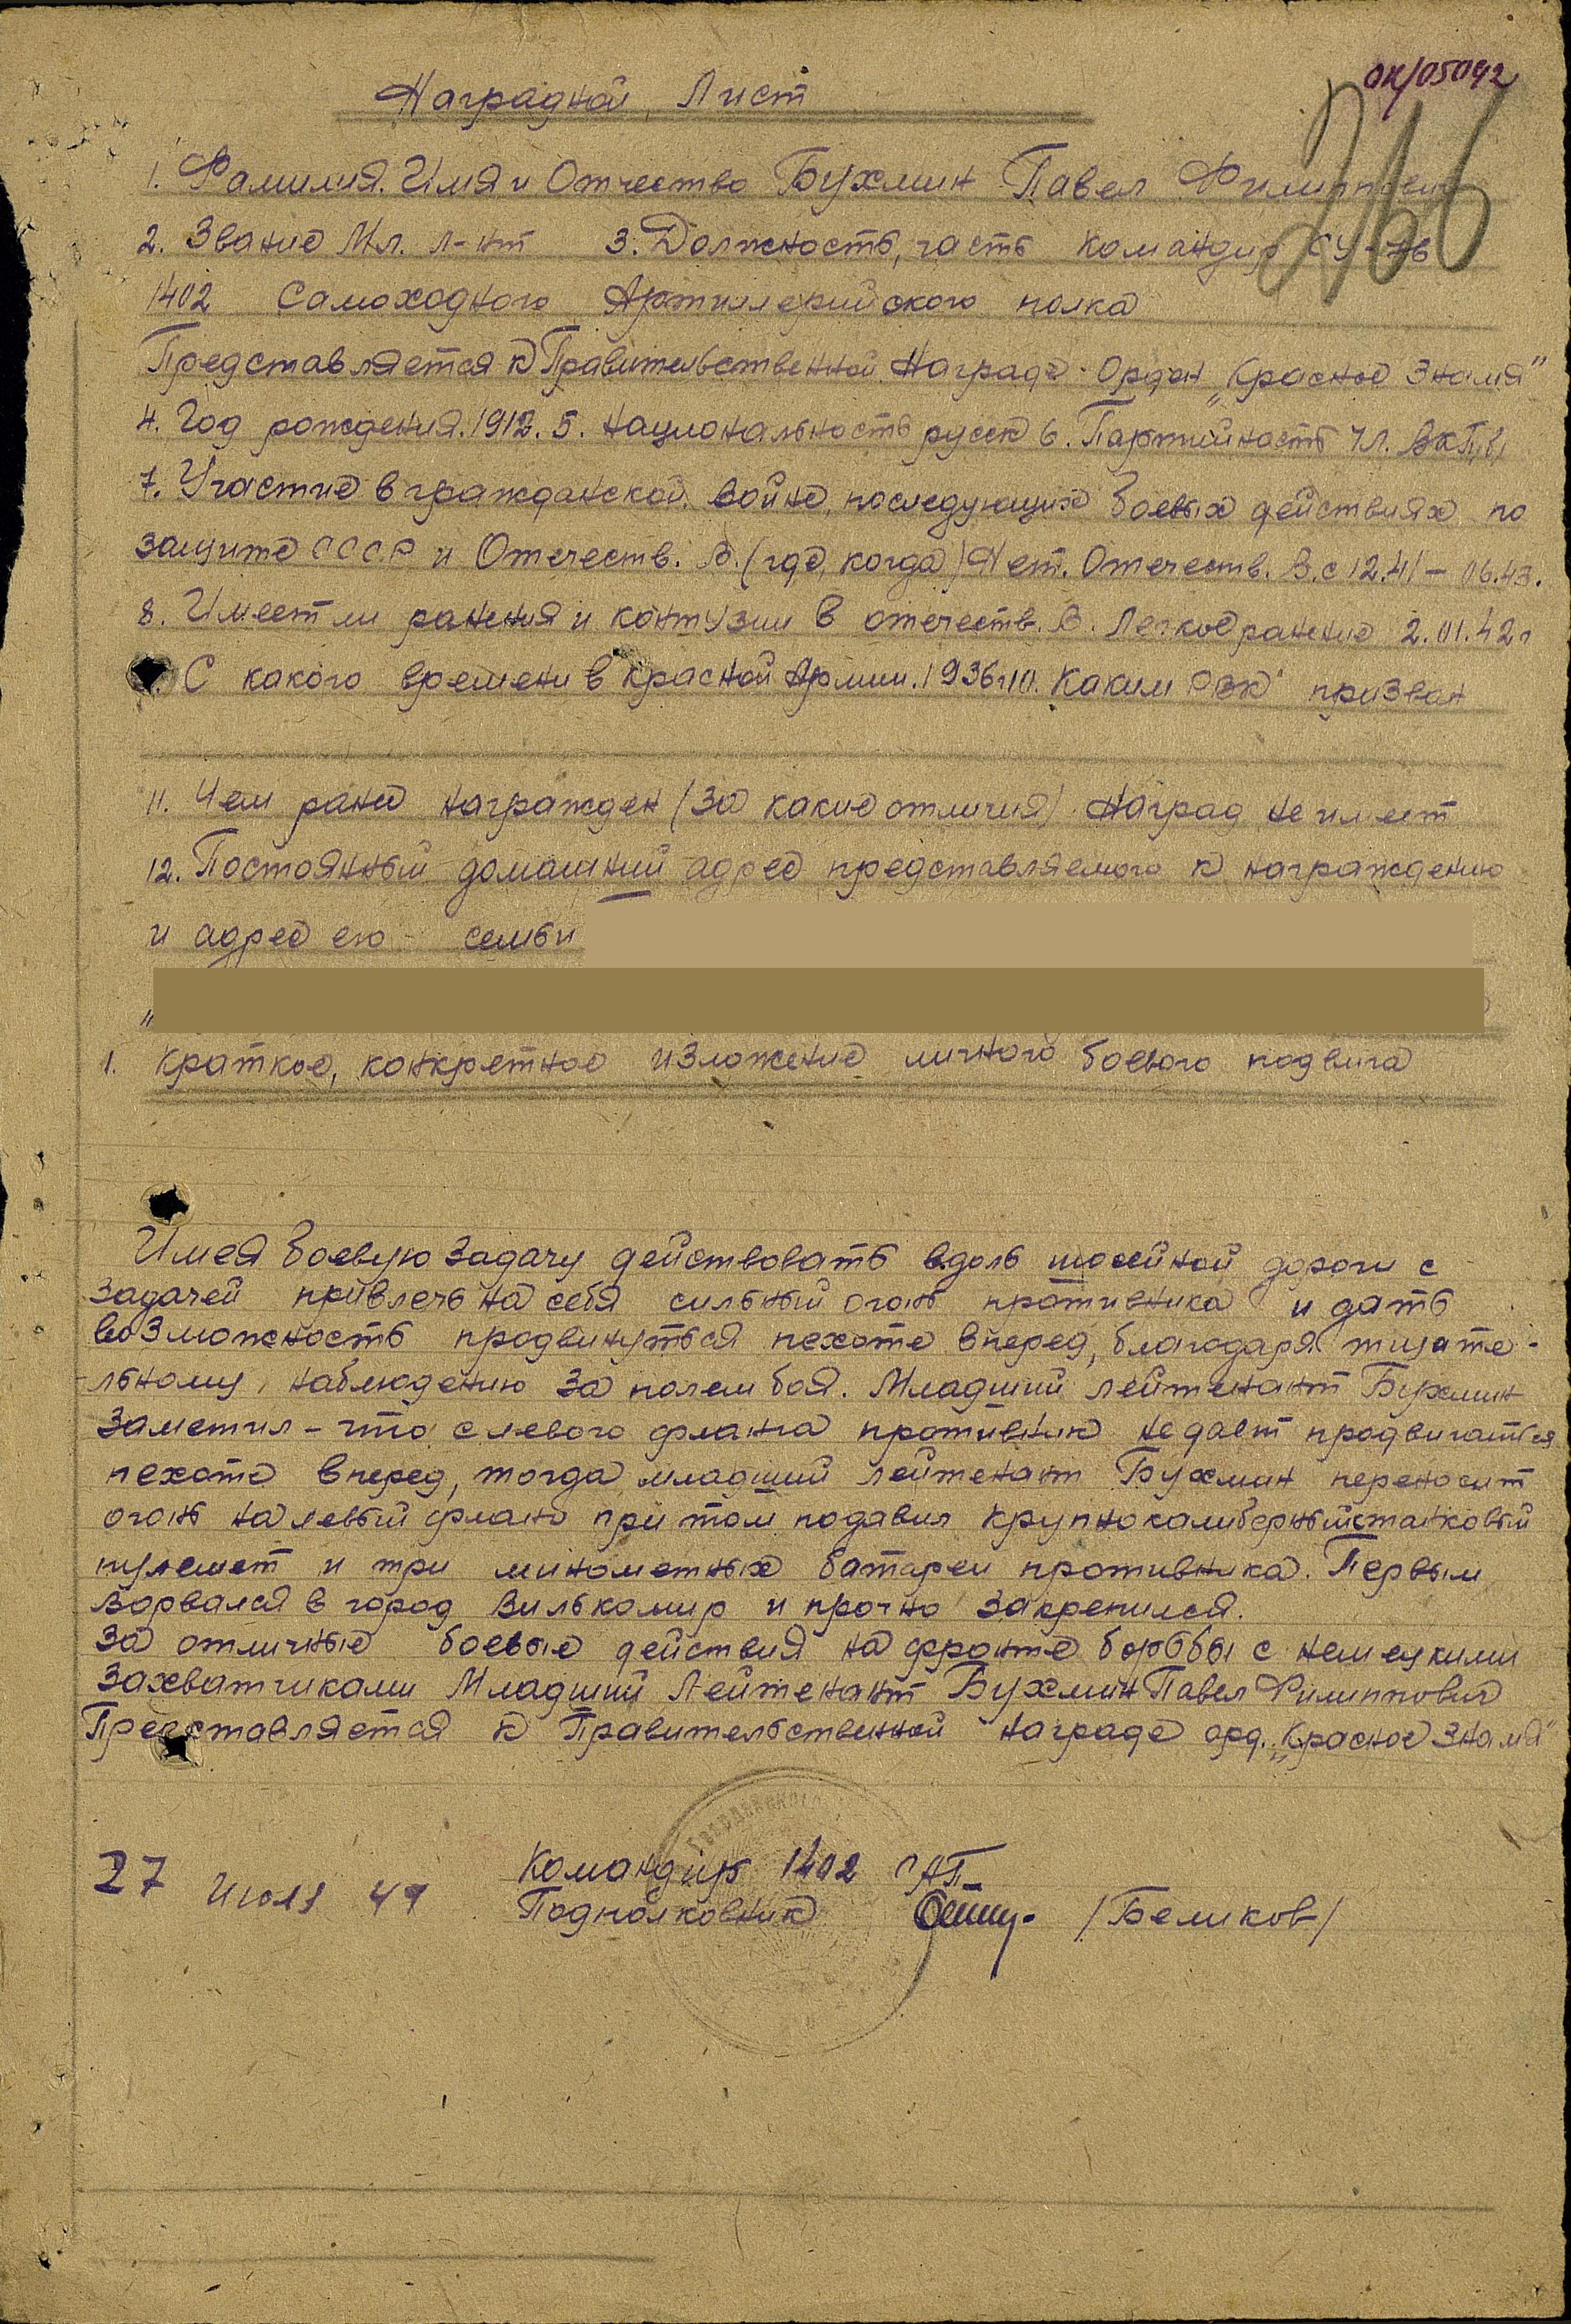 ОК/05042
266
Наградной Лист
1. Фамилия. Имя и Отчество Бухмин Павел Филиппович
2. Звание Мл. л-нт 3. Должность, часть командир СУ-76
1402 Самоходного Артиллерийского полка
Представляется к Правительственной Награде. Орден „Красное Знамя"
4. Год рождения. 1912. 5. Национальность русск 6. Партийность Чл. ВКП(б)
7. Участие в гражданской войне, последующих боевых действиях по
защите СССР и Отечеств. В. (где, когда) Нет. Отечеств. В. с 12.41 – 06.43.
8. Имеет ли ранения и контузии в отечеств. В. Легкое ранение 2.01.42 г
С какого времени в Красной Армии. 1936 г. 10. Каким РВК призван
11. Чем ранее награжден (за какие отличия) Наград не имеет
12. Постоянный домашний адрес представляемого к награждению
и адрес его семьи
1. Краткое, конкретное изложение личного боевого подвига
Имея боевую задачу действовать вдоль шосейной дороги с
задачей привлечь на себя сильный огонь противника и дать
возможность продвинуться пехоте вперед, благодаря тщате-
льному наблюдению за полем боя. Младший лейтенант Бухмин
заметил – что с левого фланга противник не дает продвигаться
пехоте вперед, тогда младший лейтенант Бухмин переносит
огонь на левый фланг при том подавил крупнокалиберный станковый
пулемет и три минометных батареи противника. Первым
ворвался в город Вилькомир и прочно закрепился.
За отличные боевые действия на фронте борьбы с немецкими
захватчиками Младший Лейтенант Бухмин Павел Филиппович
Представляется к Правительственной награде орд. „Красное Знамя"
27 Июля 44
Командир 1402 САП
Подполковник /Беликов/